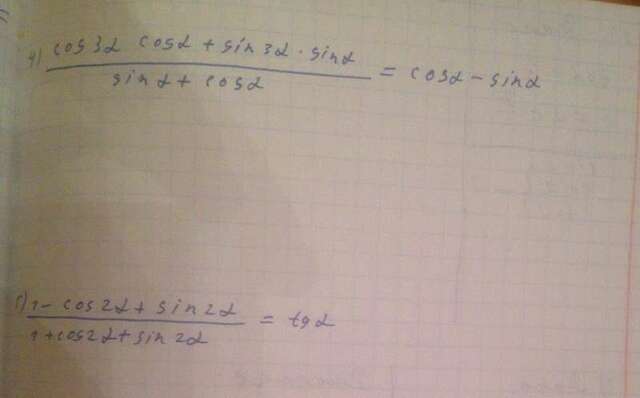 4) cos3α cosα + sin3α · sinα
sinα + cosα = cosα - sinα
1 - cos2α + sin2α
1 + cos2α + sin2α = tgα